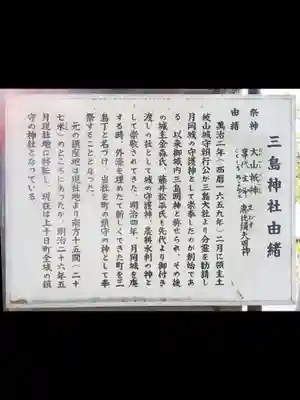 三島神社由緒
祭神
大山祇神
事代主神
由緒
萬治二年(西暦一六五九年)二月に領主土
岐山城守頼行公が三島大社より分霊を勧請し
月岡城の守護神として崇奉したのが創始であ
る、以来御城内三島明神と称せられ、その後
の城主金森氏、藤井松平氏も先代より御付き
渡しの社として城の守護神、農耕水利の神と
して崇敬されてきた。明治四年、月岡城を廃
する時、外濠を埋めたて新しくできた町を三
島丁と名づけ、当社を町の鎮守の神として奉
祭することとなった。
元の鎮座地は現社地より南方十五間(二十
七米)のところにあったが、明治二十六年五
月現社地に移転し、現在は上十日町全域の鎮
守の神社となっている。